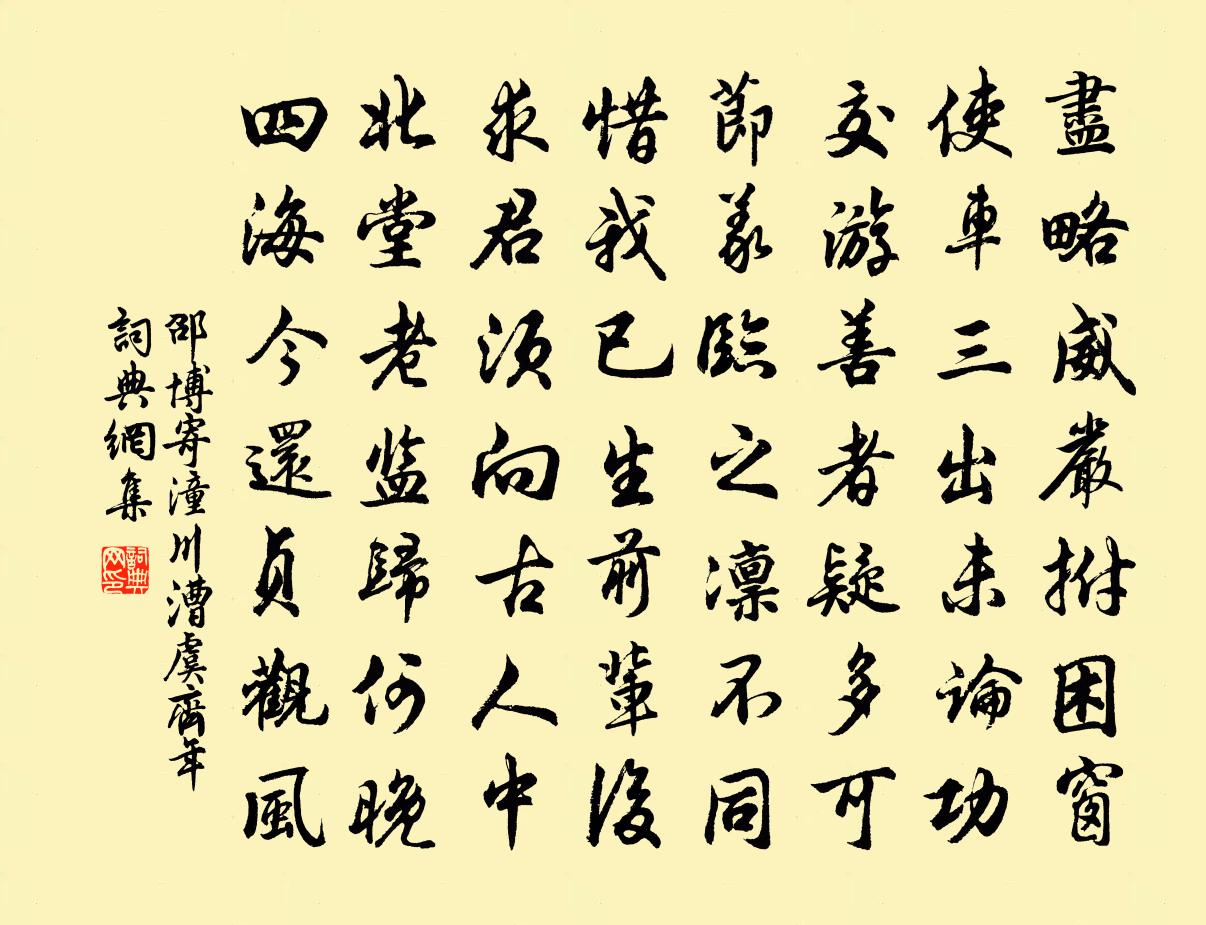 盡略威嚴拊困窗
使車三出未論功
交游善者疑多可
節義臨之凜不同
惜我已生前輩後
求君須向古人中
北堂老监歸何晚
四海今還貞觀風
邵博寄潼川漕虞齊年
詞典網集
詞典
网印